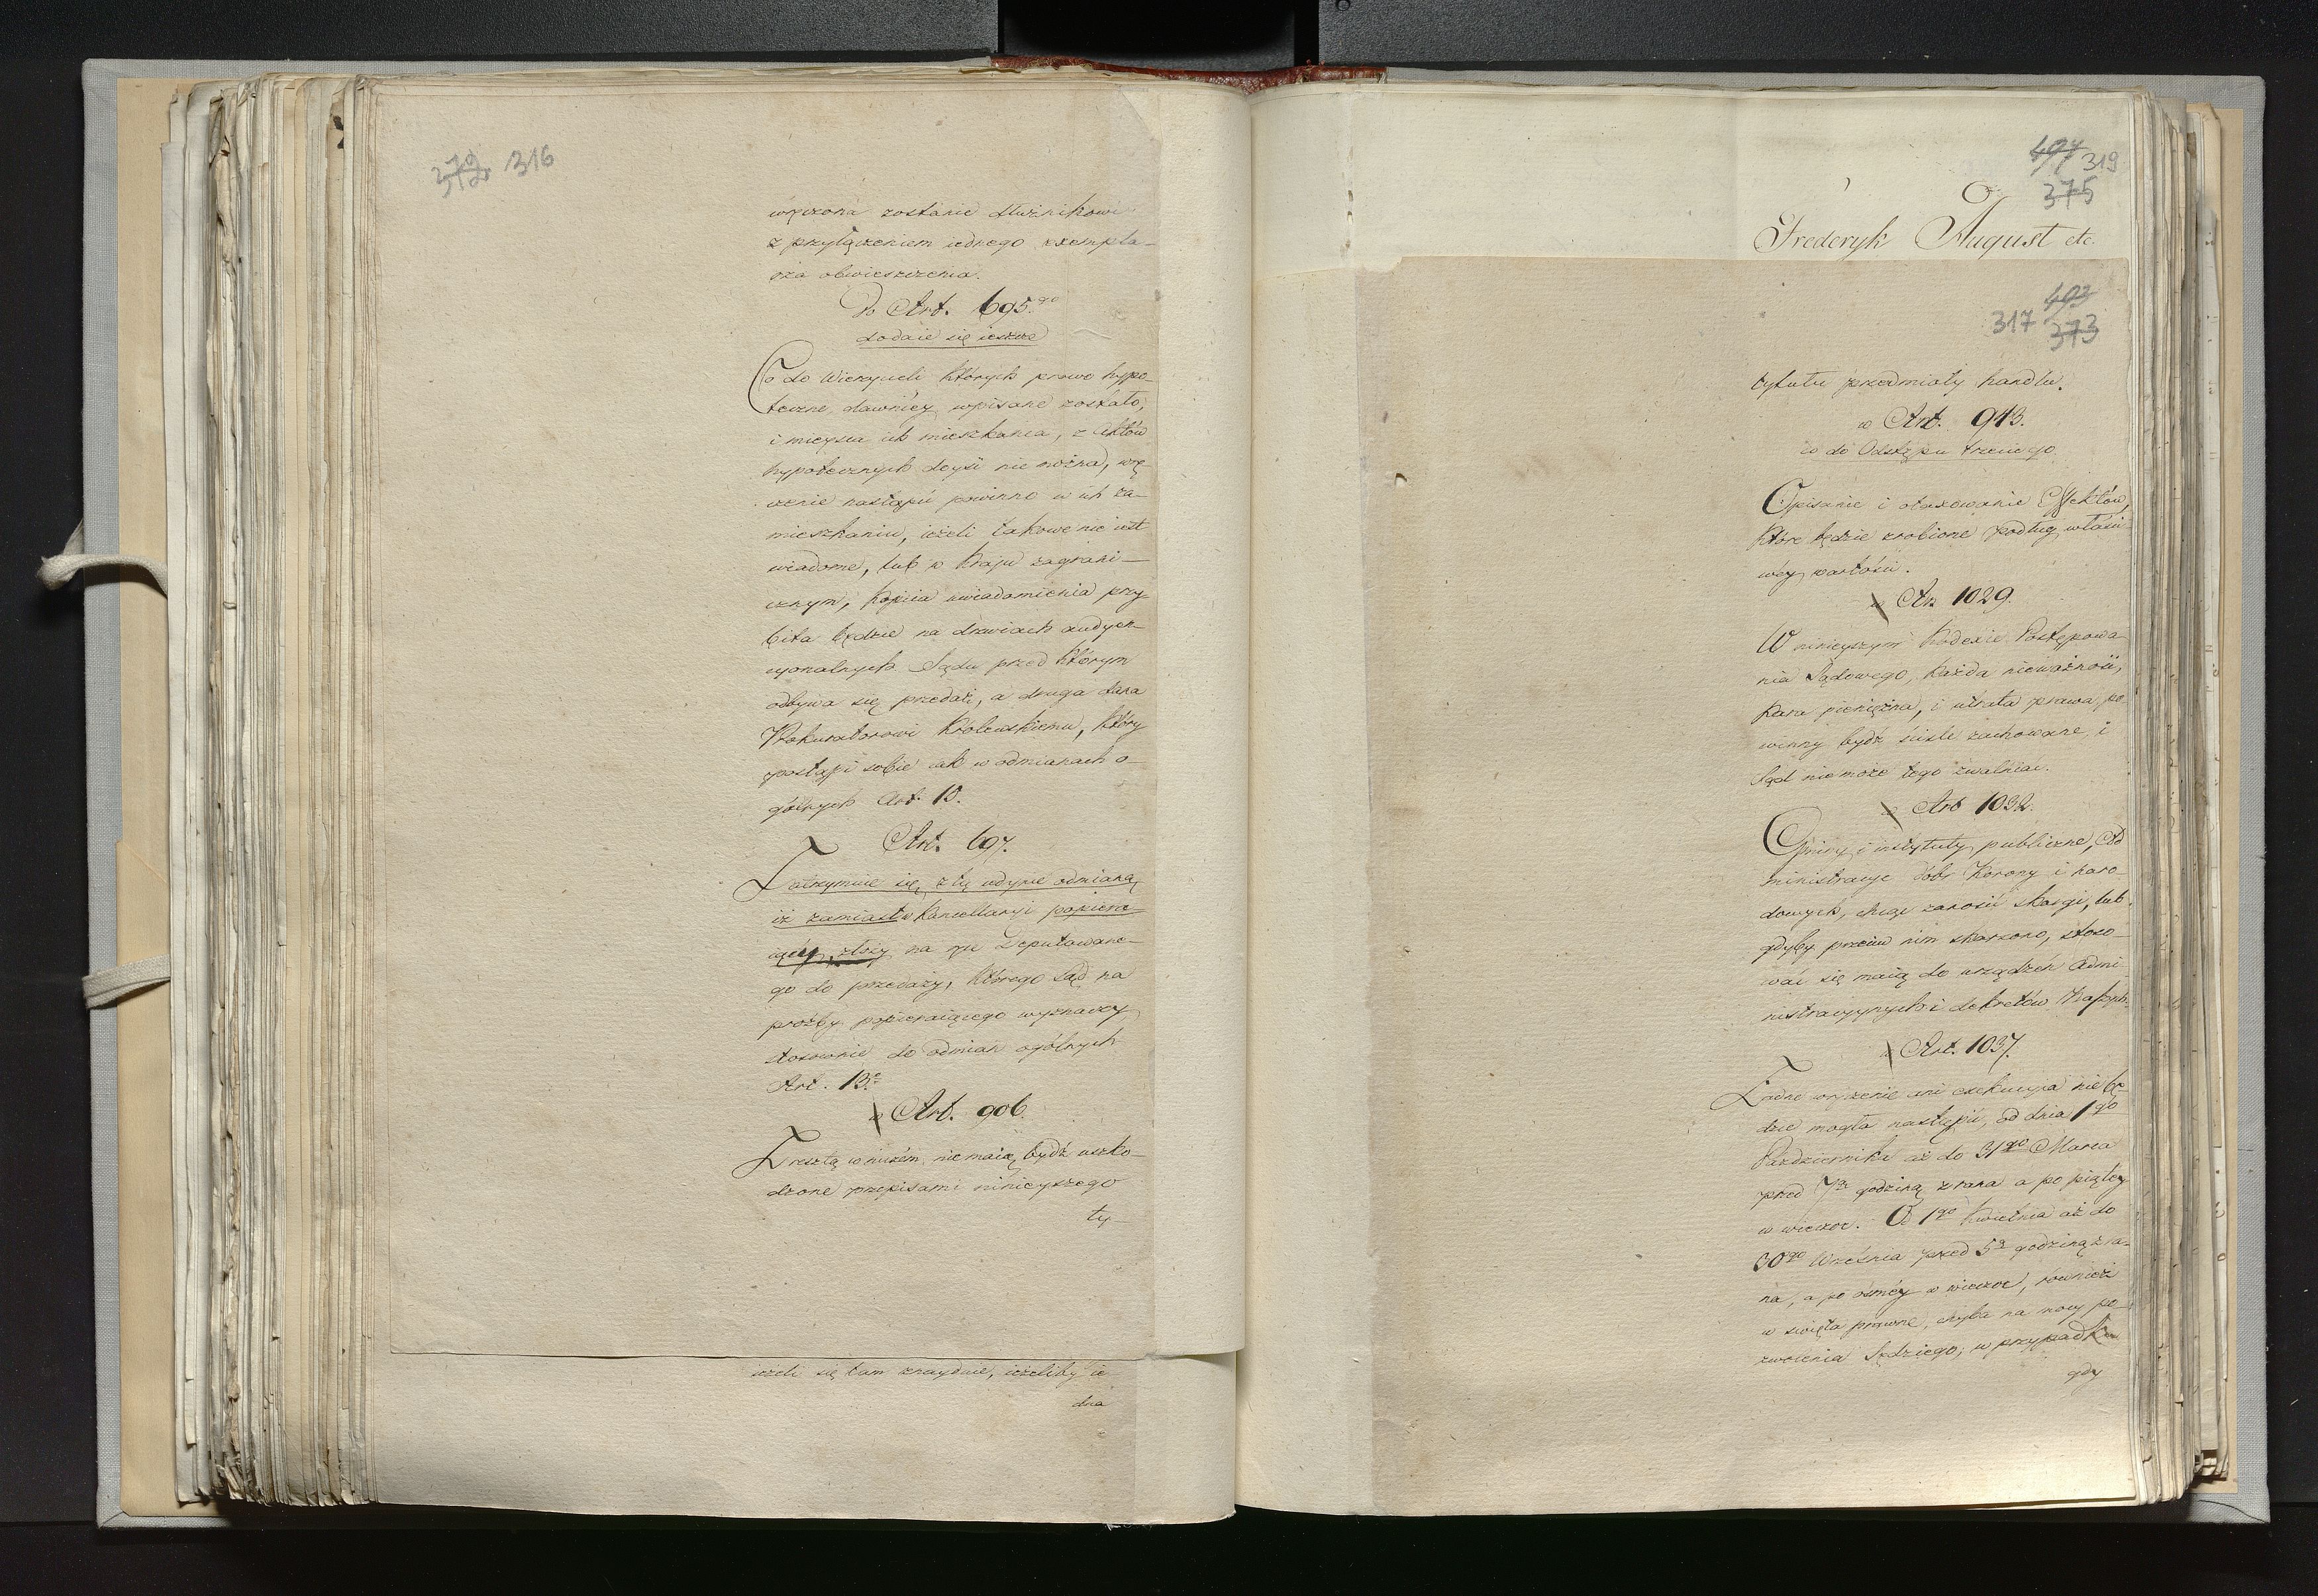 372 316
wręczona zostanie służnikowi
z przyłączeniem iednego exempla-
rza obwieszczenia.
Do Art. 695.go
dodaie się ieszcze
Co do Wierzycieli których prawo hypo-
teczne dawniey wpisane zostało,
i mieysca ich mieszkania, z aktów
hypotecznych doyść nie można, wrę-
czenie nastąpić powinno w ich za-
mieszkaniu, ieżeli takowe nie iest
wiadome, lub w kraju zagrani-
cznym, kopiia uwiadomienia przy-
bita będzie na drzwiach audyen-
cyonalnych Sądu przed którym
odbywa się przedaż, a druga dana
Prokuratorowi Królewskiemu, który
postąpi sobie iak w odmianach o-
gólnych Art. 10.
Art. 697.
Zatrzymuie się, z tą iedynie odmianą,
iż zamiast w kancellaryi popiera
iący, złoży na ręce Deputowane-
go do przedaży, którego sąd na
prozbę popieraiącego wyznaczy
stosownie do odmian ogólnych
Art. 13.
w Art. 906.
Zresztą w niczém nie maią bydź uszko-
dzone przepisami ninieyszego
ty-
ieżeli się tam znayduie, ieżeliby ie
dna
404 319
375
Frederyk August etc.
403
317 373
tytułu przedmioty handlu.
w Art. 943.
co do Odstępu trzeciego
Opisanie i otaxowanie Effektów,
które będzie zrobione podług właści-
wéy wartości.
w Art 1029.
W ninieyszym Kodexie Postępowa-
nia Sądowego, każda nieważność,
kara pieniężna, i utrata prawa, po-
winny bydź ściśle zachowane i
Sąd nie może tego zwalniać.
w Art 1032.
Gminy i instytuty publiczne, Ad
ministracye dóbr Korony i naro-
dowych, chcąc zanosić skargi, lub
gdyby przeciw nim skarzono, stoso-
wać się maią do urządzeń admi-
nistracyynych i dekretów Naszych.
w Art. 1037.
Żadne wręczenie ani exekucyia nie bę-
dzie mogła nastąpić, od dnia 1go
Października aż do 31go Marca
przed 7a godziną z rana a po piątey
w wieczor. Od 1go Kwietnia aż do
30go Września przed 5a godziną z ra-
na, a po ósméy w wieczor, również
w święta prawne, chyba na mocy po-
zwolenia Sędziego, w przypadku
gdy